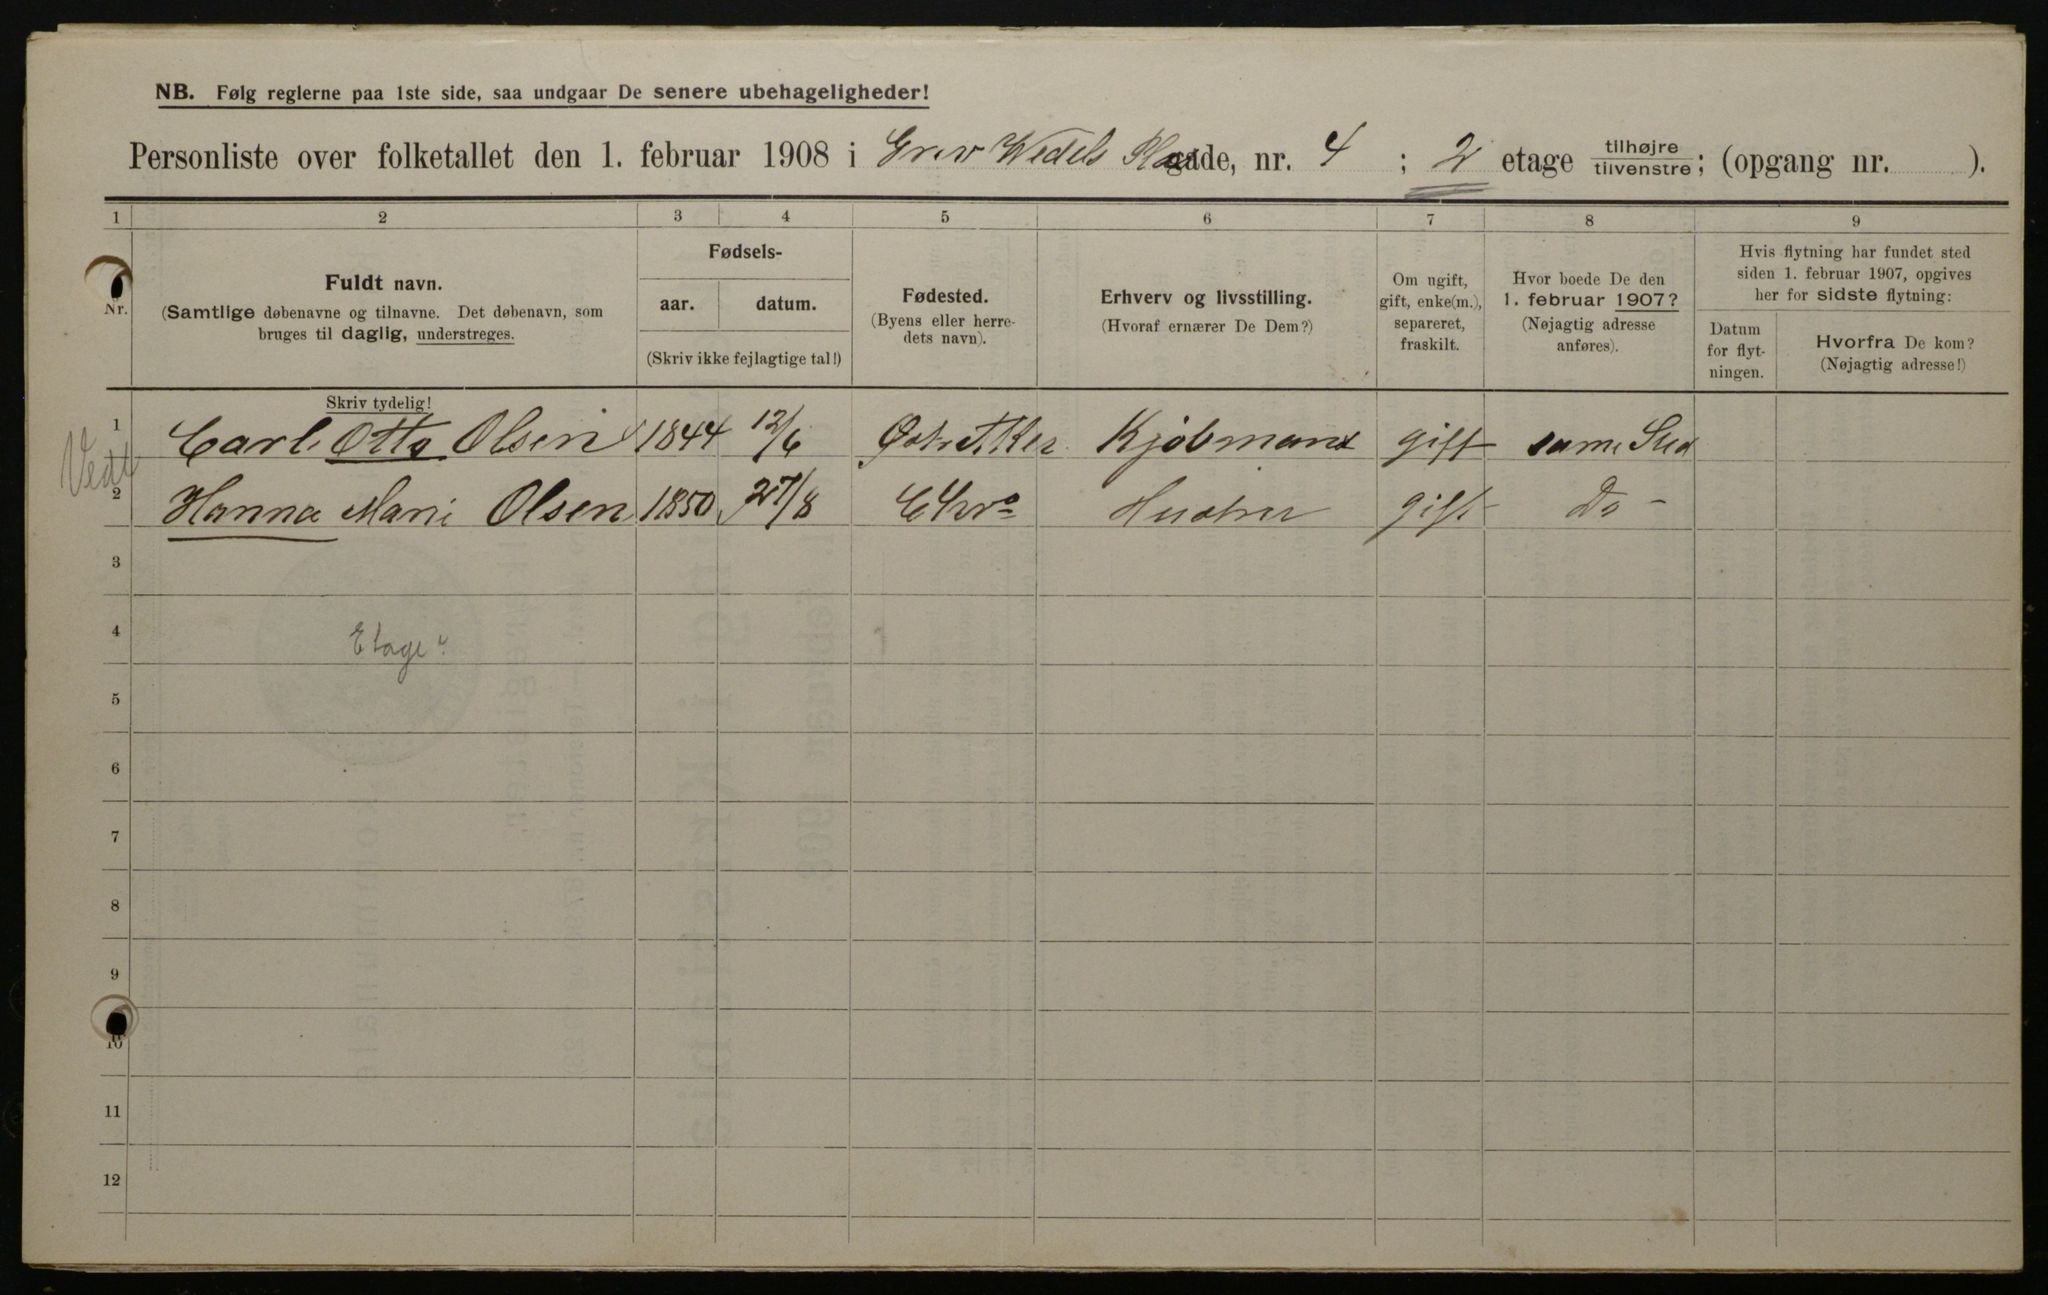 NB. Følg reglerne paa 1ste side, saa undgaar De senere ubehageligheder!
Personliste over folketallet den 1. februar 1908 i Grev Wedels Plads gade, nr. 4 ; 2 etage tilhøjre tilvenstre; (opgang nr. ).
1 2 3 4 5 6 7 8 9
Nr.
Fuldt navn.
(Samtlige døbenavne og tilnavne. Det døbenavn, som
bruges til daglig, understreges.
Skriv tydelig!
Fødsels-
aar. datum.
(Skriv ikke fejlagtige tal!)
Fødested.
(Byens eller herre-
dets navn).
Erhverv og livsstilling.
(Hvoraf ernærer De Dem?)
Om ugift,
gift, enke(m.),
separeret,
fraskilt.
Hvor boede De den
1. februar 1907?
(Nøjagtig adresse
anføres).
Hvis flytning har fundet sted
siden 1. februar 1907, opgives
her for sidste flytning:
Datum
for flyt-
ningen.
Hvorfra De kom?
(Nøjagtig adresse!)
1 Carl Otto Olsen 1844 12/6 Østre Aker Kjøbmand gift samme Sted
2 Hanna Marie Olsen 1850 27/8 Chra Hustru gift Do
3
4
Etage?
5
6
7
8
9
10
11
12